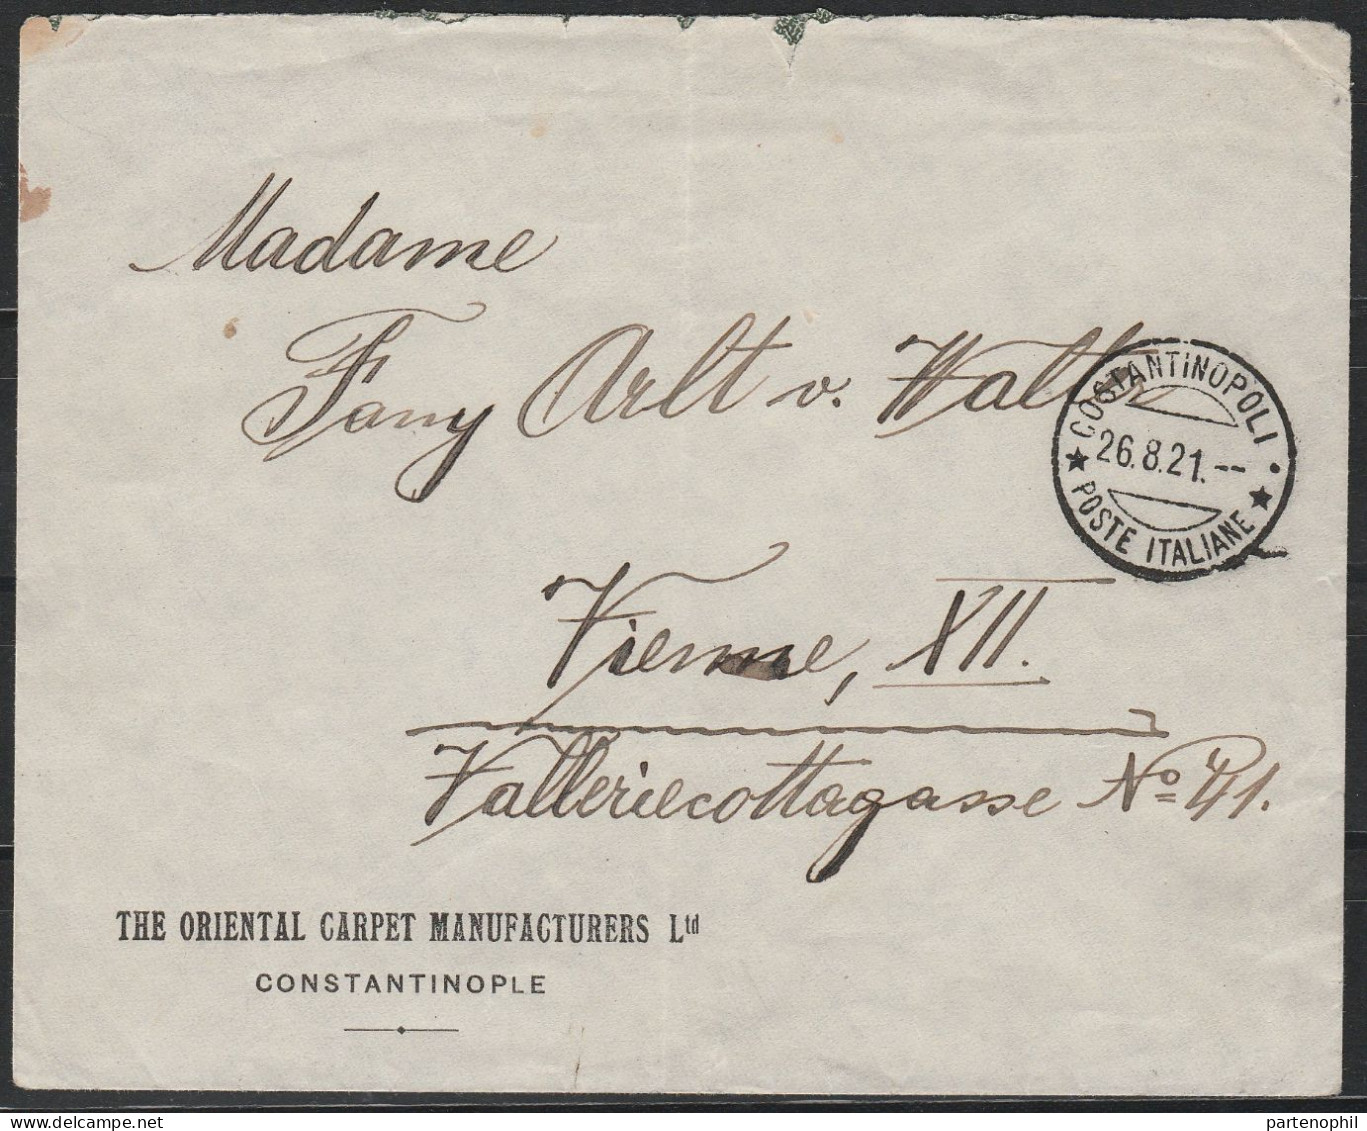 Madame
Fany Arlt v. Walter
COSTANTINOPOLI
26.8.21.--
POSTE ITALIANE
Vienne, XII.
Valleriecottagasse No 41.
THE ORIENTAL CARPET MANUFACTURERS Ltd
CONSTANTINOPLE
partenophil